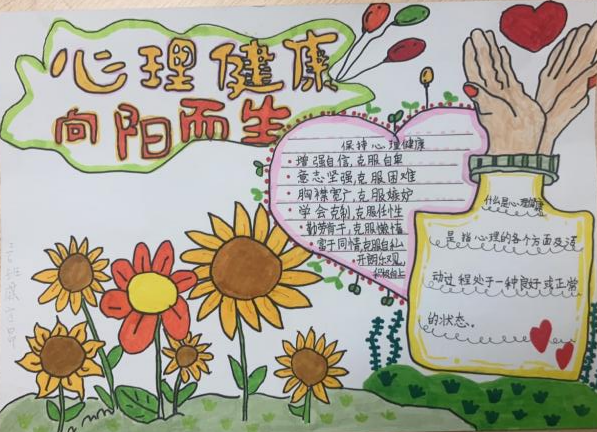 心理健康
向阳而生
保持心理健康
增强自信,克服自卑
意志坚强,克服困难
胸襟宽广,克服嫉妒
学会克制,克服任性
勤劳肯干,克服懒惰
富于同情,克服自私
开朗乐观,
积极向上
什么是心理健康
是指心理的各个方面及活
动过程处于一种良好或正常
的状态。